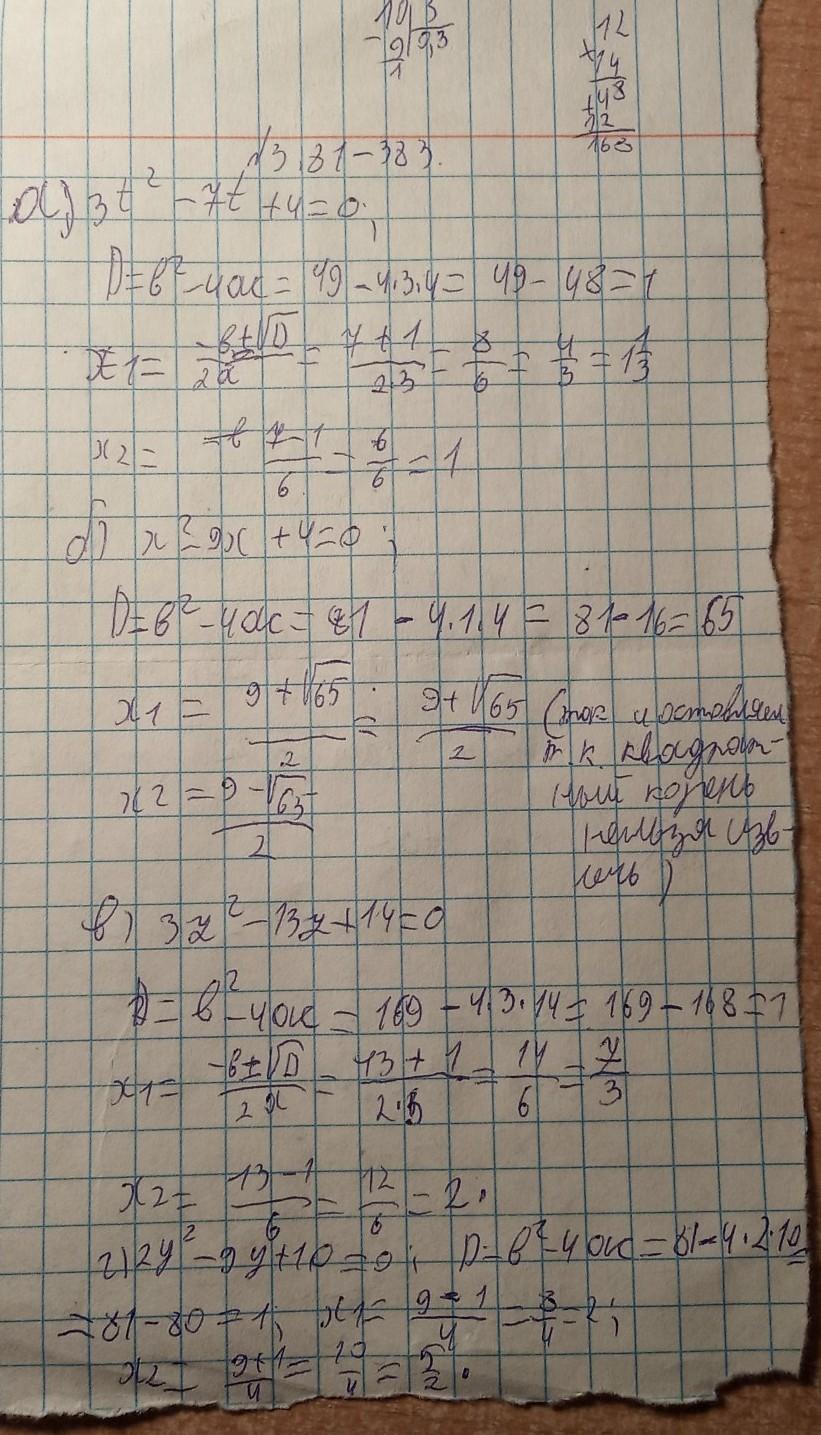 10 | 3
- 9 | 9,3
1
12
× 14
+48
12
168
√3.81-383.
а) 3t² - 7t + 4 = 0;
D = b² - 4ac = 49 - 4·3·4 = 49 - 48 = 1
x1 = (-b ± √D)/2a = (7 + 1)/2·3 = 8/6 = 4/3 = 1 1/3
x2 = (7 - 1)/6 = 6/6 = 1
б) x² - 9x + 4 = 0;
D = b² - 4ac = 81 - 4·1·4 = 81 - 16 = 65
x1 = (9 + √65)/2 = (9 + √65)/2 (так и оставляем
т.к. квадрат-
x2 = (9 - √65)/2 ный корень
нельзя изв-
лечь)
в) 3z² - 13z + 14 = 0
D = b² - 4ac = 169 - 4·3·14 = 169 - 168 = 1
x1 = (-b ± √D)/2a = (13 + 1)/2·3 = 14/6 = 7/3
x2 = (13 - 1)/6 = 12/6 = 2.
г) 2y² - 9y + 10 = 0; D = b² - 4ac = 81 - 4·2·10
= 81 - 80 = 1; x1 = (9 - 1)/4 = 8/4 = 2;
x2 = (9 + 1)/4 = 10/4 = 5/2.